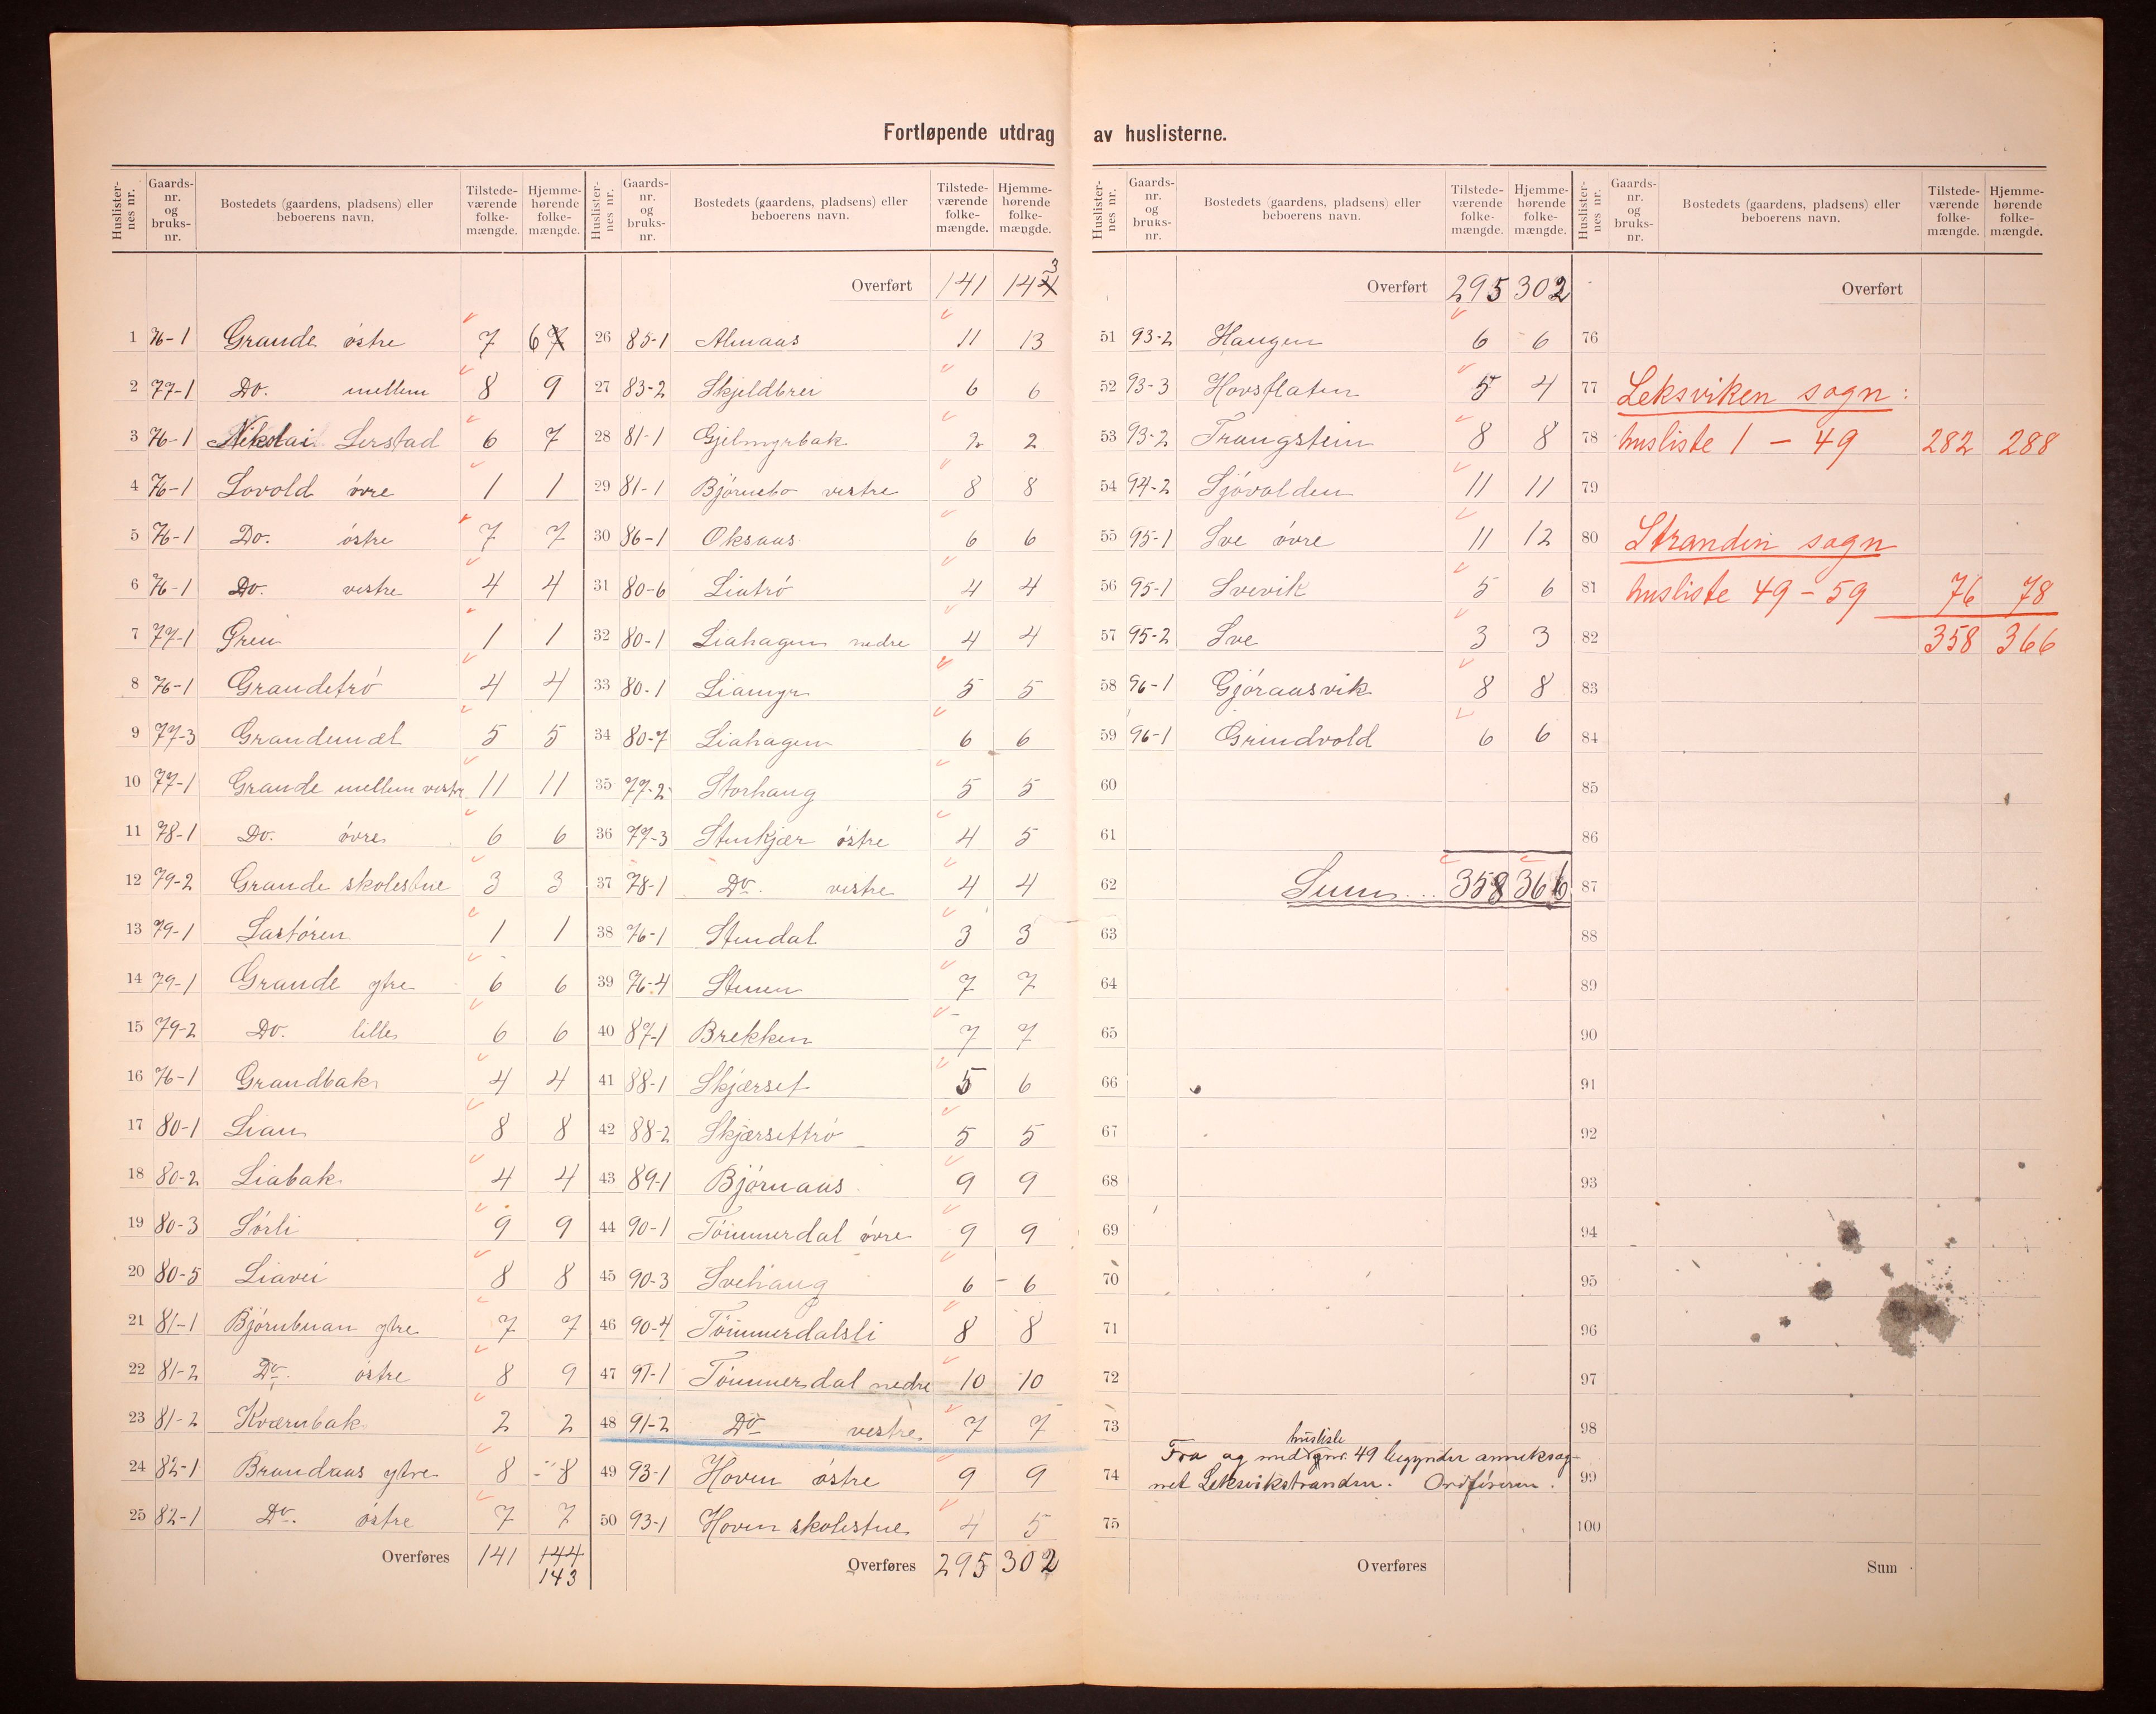 Fortløpende utdrag av huslisterne.
Huslisternes nr. Gaards-nr. og bruks-nr. Bostedets (gaardens, pladsens) eller beboerens navn. Tilstede-værende folke-mængde. Hjemme-hørende folke-mængde.
1 76-1 Grande østre 7 6 7
2 77-1 Do. mellem 8 9
3 76-1 Nikolai Lerstad 6 7
4 76-1 Lovold øvre 1 1
5 76-1 Do. østre 7 7
6 76-1 Do. vestre 4 4
7 77-1 Gren 1 1
8 76-1 Grandetrø 4 4
9 77-3 Grandemæl 5 5
10 77-1 Grande mellem vestr. 11 11
11 78-1 Do. øvre 6 6
12 79-2 Grande skolestue 3 3
13 79-1 Lastøren 1 1
14 79-1 Grande ytre 6 6
15 79-2 Do. lille 6 6
16 76-1 Grandbak 4 4
17 80-1 Lian 8 8
18 80-2 Liabak 4 4
19 80-3 Sørli 9 9
20 80-5 Liavei 8 8
21 81-1 Bjørnbuan ytre 7 7
22 81-2 Do. østre 8 9
23 81-2 Kværnbak 2 2
24 82-1 Brandaas ytre 8 - 8
25 82-1 Do. østre 7 7
Overføres 141 144
143
Huslisternes nr. Gaards-nr. og bruks-nr. Bostedets (gaardens, pladsens) eller beboerens navn. Tilstede-værende folke-mængde. Hjemme-hørende folke-mængde.
Overført 141 144 3
26 85-1 Almaas 11 13
27 83-2 Skjeldbrei 6 6
28 81-1 Gjelmyrbak 2 2
29 81-1 Bjørnebo vestre 8 8
30 86-1 Oksaas 6 6
31 80-6 Liatrø 4 4
32 80-1 Liahagen nedre 4 4
33 80-1 Liamyr 5 5
34 80-7 Liahagen 6 6
35 77-2 Storhaug 5 5
36 77-3 Stenkjær østre 4 5
37 78-1 Do. vestre 4 4
38 76-1 Stendal 3 3
39 76-4 Stenen 7 7
40 87-1 Brekken 7 7
41 88-1 Skjærset 5 6
42 88-2 Skjærsettrø 5 5
43 89-1 Bjørnaas 9 9
44 90-1 Tømmerdal øvre 9 9
45 90-3 Svehaug 6 - 6
46 90-4 Tømmerdalsli 8 8
47 91-1 Tømmerdal nedre 10 10
48 91-2 Do vestre 7 7
49 93-1 Hoven østre 9 9
50 93-1 Hoven skolestue 4 5
Overføres 295 302
Huslisternes nr. Gaards-nr. og bruks-nr. Bostedets (gaardens, pladsens) eller beboerens navn. Tilstede-værende folke-mængde. Hjemme-hørende folke-mængde.
Overført 295 302
51 93-2 Haugen 6 - 6
52 93-3 Hovsflaten 5 4
53 93-2 Trangstein 8 8
54 94-2 Sjøvolden 11 11
55 95-1 Sve øvre 11 12
56 95-1 Svevik 5 6
57 95-2 Sve 3 3
58 96-1 Gjøraasvik 8 8
59 96-1 Grindvold 6 6
60
61
62 Sum 358 366
63
64
65
66
67
68
69
70
71
72
73
husliste
Fra og med gnr. 49 begynder annekssog-
74 net Leksvikstranden. Ordføreren.
75
Overføres
Huslisternes nr. Gaards-nr. og bruks-nr. Bostedets (gaardens, pladsens) eller beboerens navn. Tilstede-værende folke-mængde. Hjemme-hørende folke-mængde.
Overført
76
77 Leksviken sogn:
78 husliste 1 - 49 282 288
79
80 Stranden sogn
81 husliste 49 - 59 76 78
82 358 366
83
84
85
86
87
88
89
90
91
92
93
94
95
96
97
98
99
100
Sum